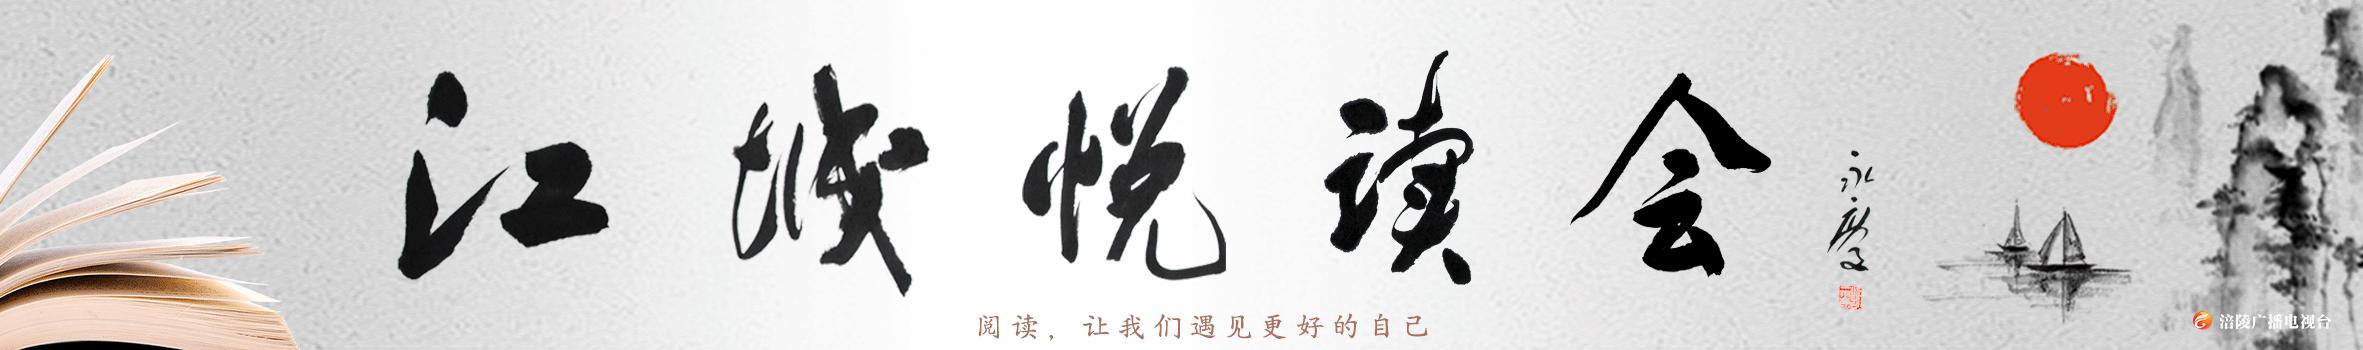 江城悦读会
永慶
阅读，让我们遇见更好的自己
涪陵广播电视台